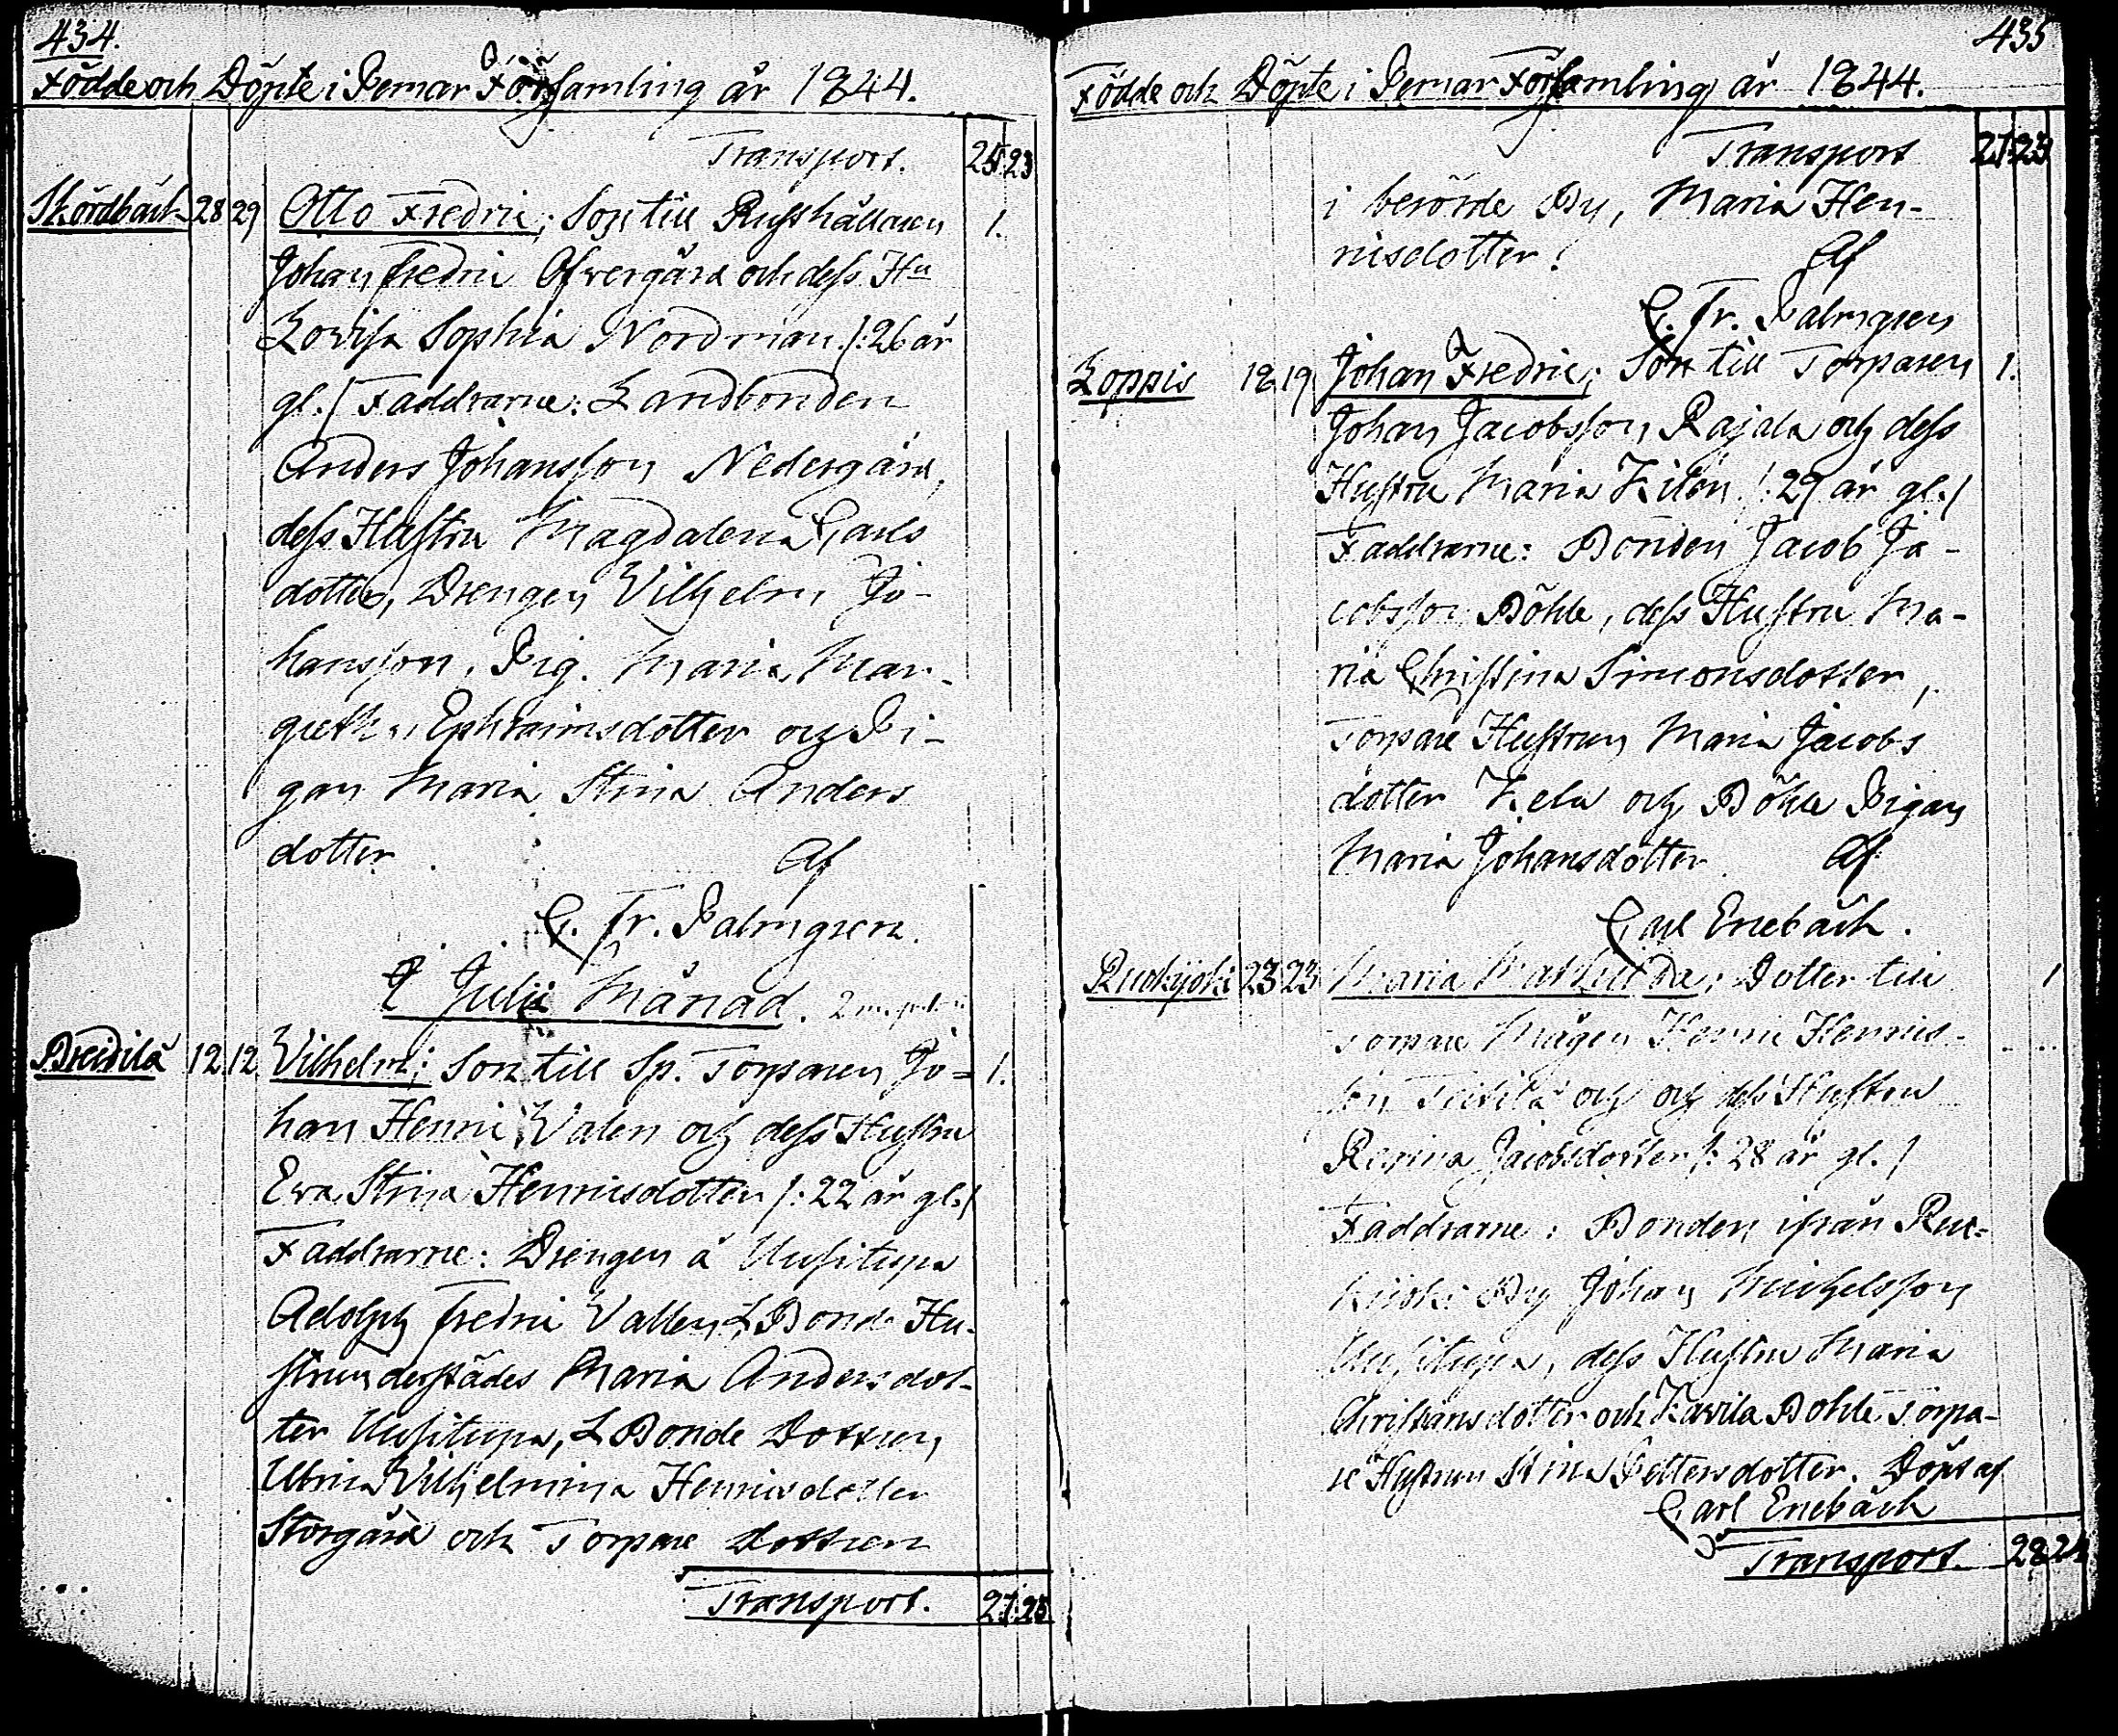 434.
Födde och Döpte i Pemar Församling år 1844.
Transport. 25 23
Skördbäck 28 29 Otto Fredric; Son till Rusthållaren 1.
Johan Fredric Ofvergård och dess Hu
Lovisa Sophia Nordman /: 26 år
gl./ Faddrarne: Landbonden
Anders Johansson Nedergård,
dess Hustru Magdalena Carls
dotter, Drengen Vilhelm Jo-
hansson, Pig. Maria Mar-
getha Ephraimsdotter och Pi-
gan Maria Stina Anders
dotter. Af
C. Fr. Palmgren.
I Julii Månad.
12 12 Vilhelm; Son till Sp. Torparen Jo= 1.
han Henric Valen och dess Hustru
Eva Stina Henricsdotter /: 22 år gl./
Faddrarne: Drengen å Uusitupa
Adolph Fredric Vallen, L Bonde Hu-
strun derstädes Maria Andersdot-
ter Uusitupa, L Bonde Dottren,
Ulrica Vilhelmina Henricsdotter
Storgård och Torpare dottren
Transport. 27 23
435
Födde och Döpte i Pemar Församling år 1844.
Transport 27 23
i berörde By, Maria Hen-
ricsdotter. Af
C. Fr. Palmgren
Loppis 18 19 Johan Fredric; Son till Torparen 1.
Johan Jacobsson Rajala och dess
Hustru Maria /: 29 år gl./
Faddrarne: Bonden Jacob Ja-
cobsson Böhle, dess Hustru Ma-
ria Christina Simonsdotter,
Torpare Hustrun Maria Jacobs
dotter och Böhle Pigan
Maria Johansdotter. Af
Carl Enebäck.
Ruokijoki 23 23 Maria Mathilda; Dotter till 1
Torpare Mågen Henric Henrics-
son och och dess Hustru
Regina Jacobsdotter /: 28 år gl./
Faddrarne: Bonden ifrån Ruo-
kijoki By Johan Michelsson
Uusitupa, dess Hustru Maria
Christiansdotter och Kavila Bohle Torpa-
re Hustrun Stina Pettersdotter. Döpt af
Carl Enebäck
Transport. 28 24